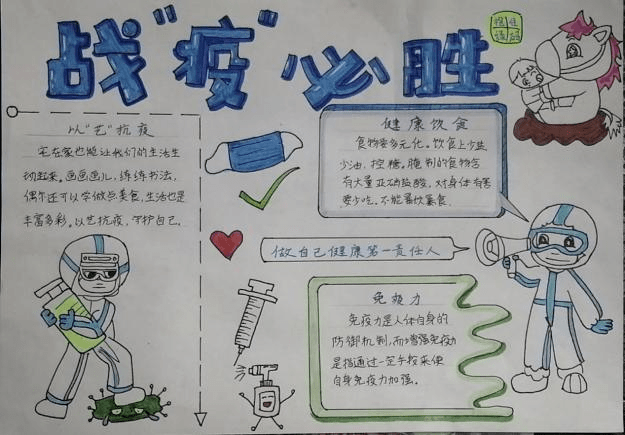 战"疫"必胜
以"艺"抗疫
宅在家也能让我们的生活生
动起来。画画画儿，练练书法，
偶尔还可以学做点美食，生活也是
丰富多彩。以艺抗疫，守护自己。
健康饮食
食物要多元化。饮食上少盐
少油，控糖，腌制的食物含
有大量亚硝盐酸，对身体有害
要少吃。不能暴饮暴食。
做自己健康第一责任人
免疫力
免疫力是人体自身的
防御机制，而增强免疫力
是指通过一定手段来使
自身免疫力加强。